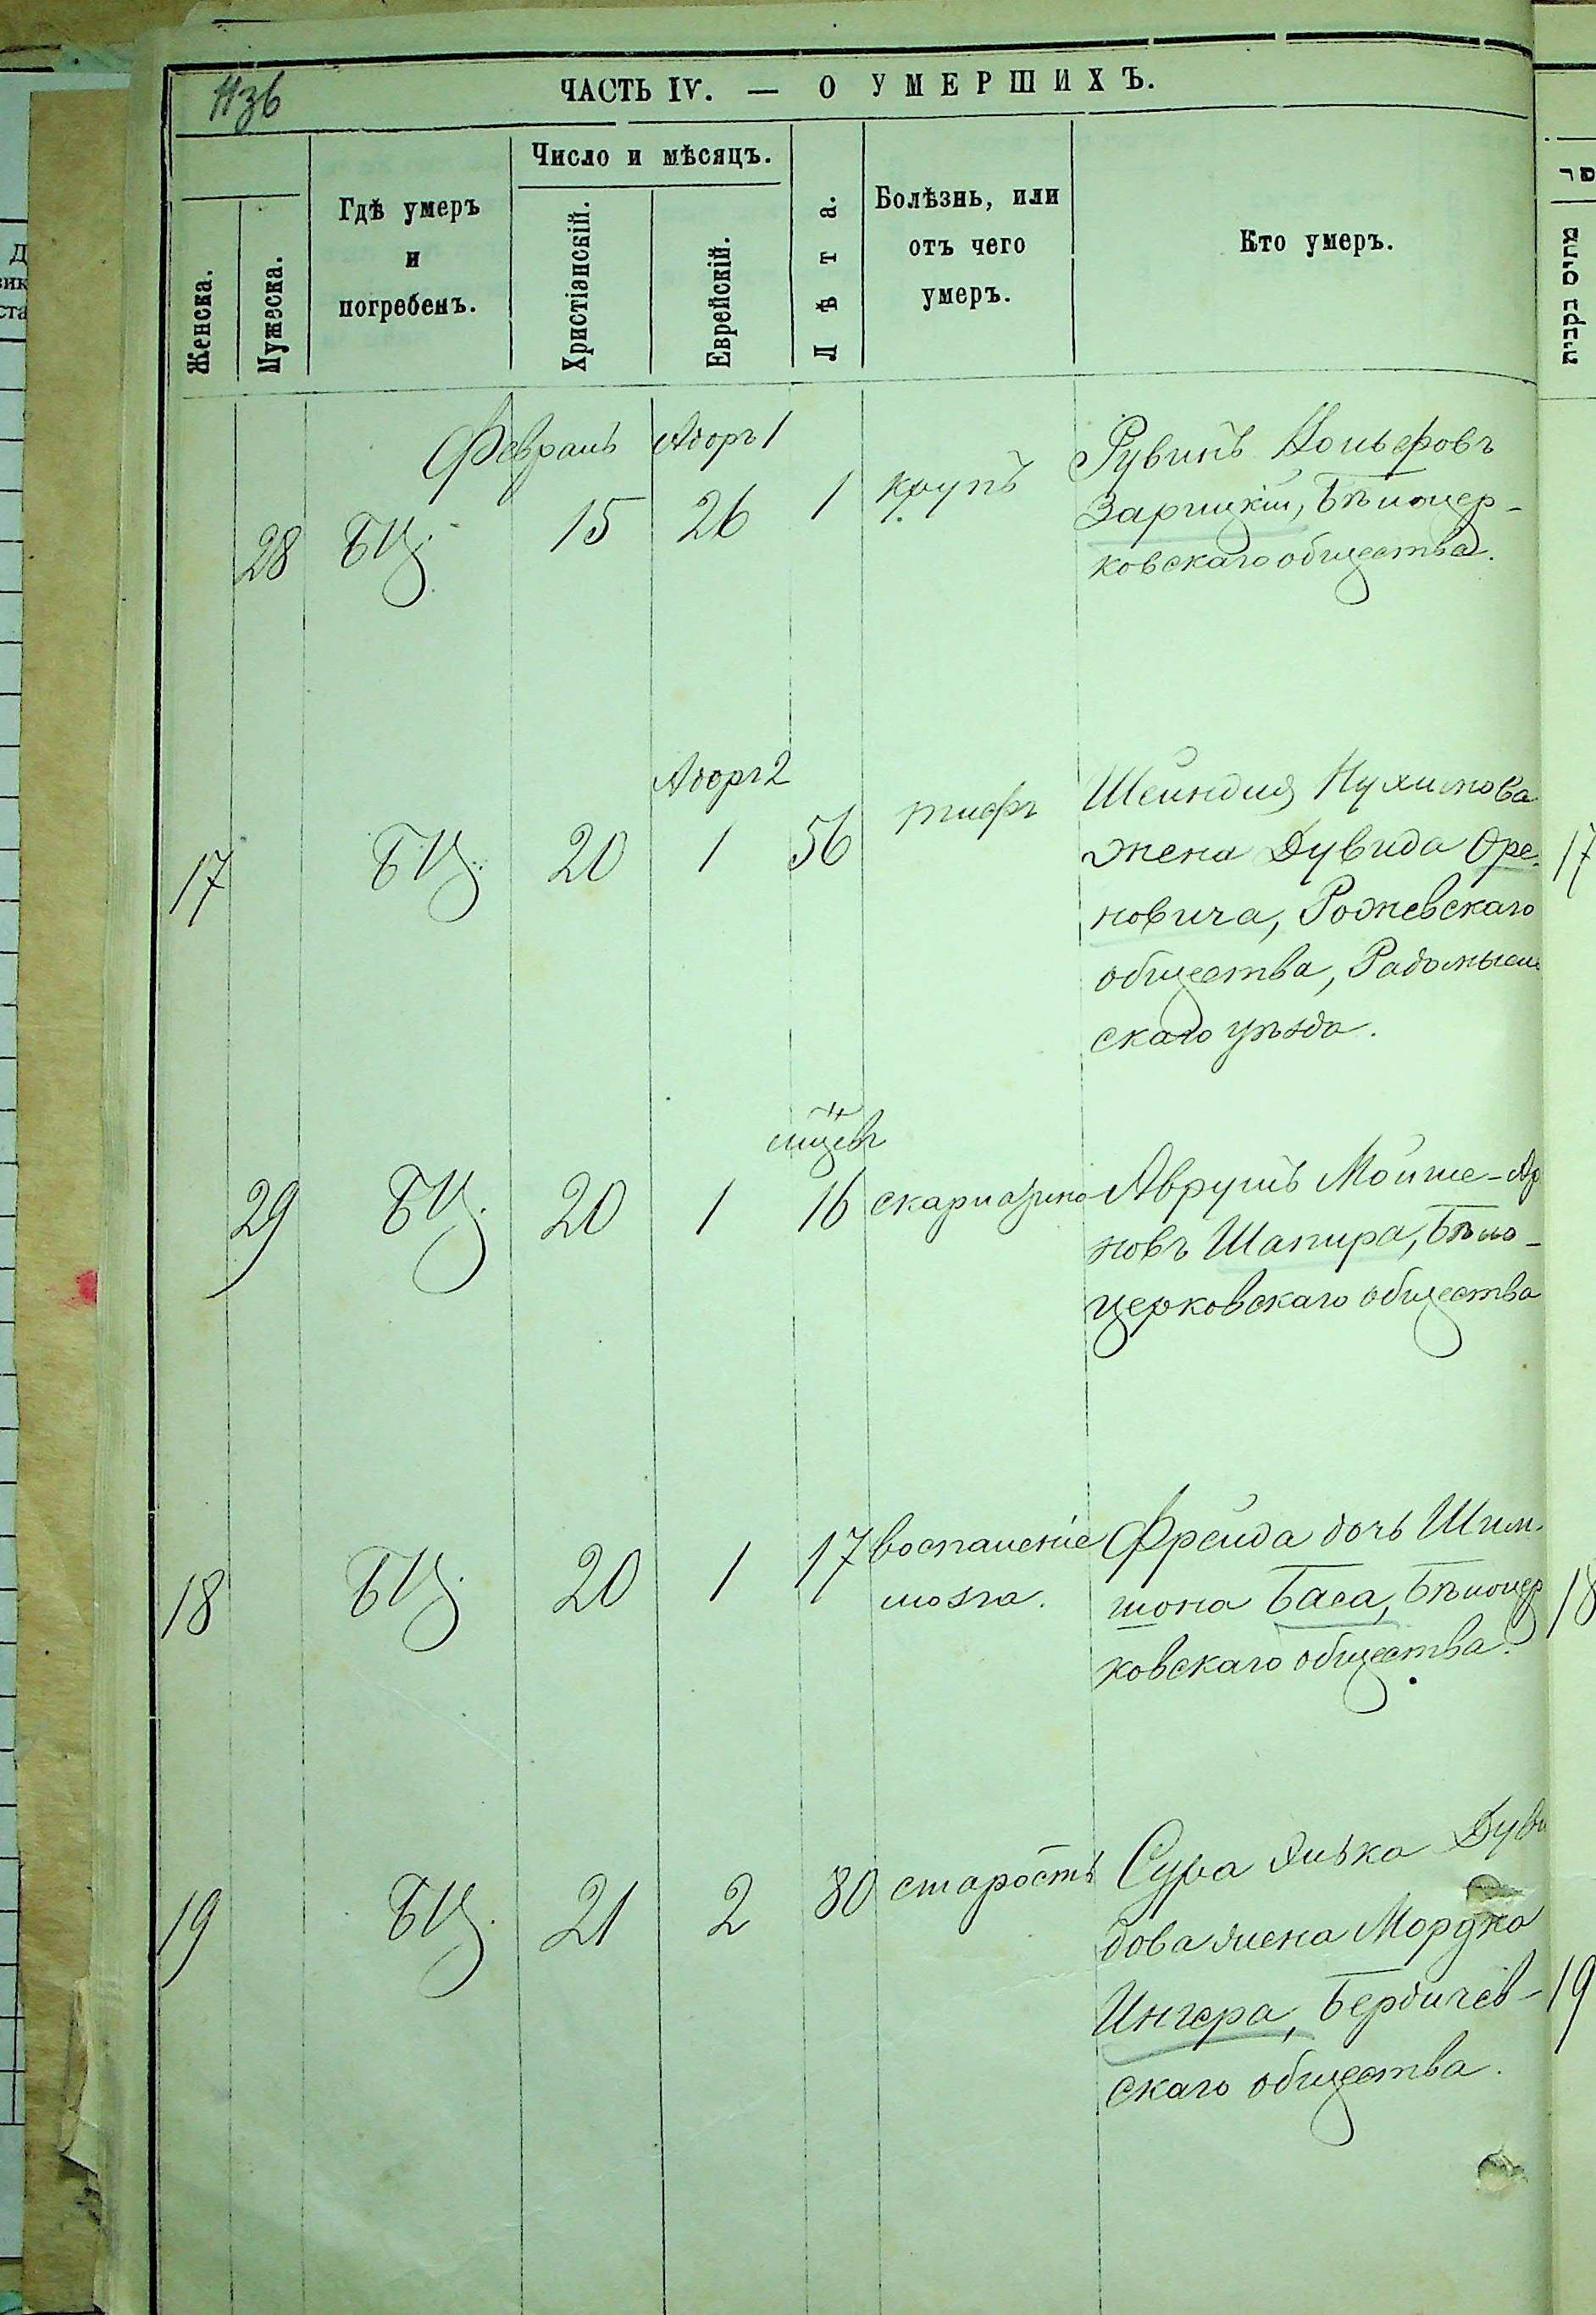 ЧАСТЬ IV. — О УМЕРШИХЪ.
Женска.
Мужеска.
Гдѣ умеръ
и
погребенъ.
Число и мѣсяцъ.
Христіанскій.
Еврейскій.
Лѣта.
Болѣзнь, или
отъ чего
умеръ.
Кто умеръ.
מתים בקבית
Февраль Адоръ 1
28 БЦ. 15 26 1 крупъ Рувинъ Іосьфовъ
Зарицкій, Бѣлоцер-
ковскаго общества.
Адоръ 2
17 БЦ. 20 1 56 тифъ Шейндля Нухимова
жена Дувида Оре-
новича, Рожевскаго
общества, Радомысль
скаго уѣзда.
17
мѣсяцевъ
29 БЦ. 20 1 16 скарлатина Аврумъ Мойше-Ар
новъ Шапира, Бѣло-
церковскаго общества
18 БЦ. 20 1 17 воспаленіе мозга. Фрейда дочь Шим-
шона Баса, Бѣлоцер
ковскаго общества.
18
19 БЦ. 21 2 80 старость Сура Ривка Дуви
дова жена Мордка
Ингера, Бердичев-
скаго общества.
19